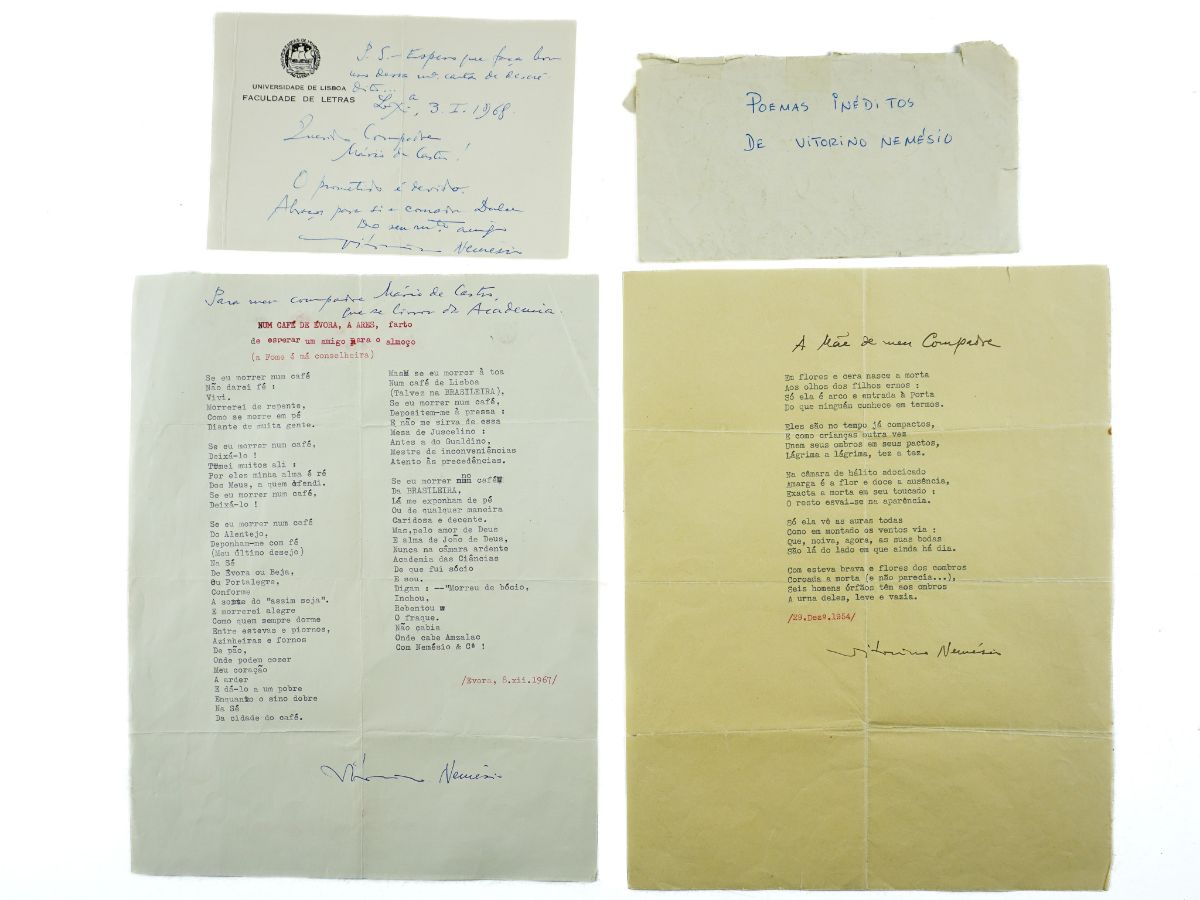 UNIVERSIDADE DE LISBOA
FACULDADE DE LETRAS
P.S.- Espero que faça bom
uso dessa carta de descré
dito...
Lxª, 3.I.1968.
Querido Compadre
Mário de Castro!
O prometido é devido.
Abraço para si e comadre Dulce
Do seu mtº amigo
Vitorino Nemésio
POEMAS INÉDITOS
DE VITORINO NEMÉSIO
Para meu compadre Mário de Castro,
que se livrou da Academia.
NUM CAFÉ DE ÉVORA, A ARES, farto
de esperar um amigo para o almoço
(a Fome é má conselheira)
Se eu morrer num café
Não darei fé :
Vivi.
Morrerei de repente,
Como se morre em pé
Diante de muita gente.
Se eu morrer num café,
Deixá-lo !
Tomei muitos ali :
Por eles minha alma é ré
Dos Meus, a quem ofendi.
Se eu morrer num café,
Deixá-lo !
Se eu morrer num café
Do Alentejo,
Deponham-me com fé
(Meu último desejo)
Na Sé
De Évora ou Beja,
Ou Portalegre,
Conforme
A sorte do "assim seja".
E morrerei alegre
Como quem sempre dorme
Entre estevas e piornos,
Azinheiras e fornos
De pão,
Onde podem cozer
Meu coração
A arder
E dá-lo a um pobre
Enquanto o sino dobre
Na Sé
Da cidade do café.
Mas se eu morrer à toa
Num café de Lisboa
(Talvez na BRASILEIRA),
Se eu morrer num café,
Depositem-me à pressa :
E não me sirva de essa
Mesa de Juscelino :
Antes a do Gualdino,
Mestre de inconveniências
Atento às precedências.
Se eu morrer no café
Da BRASILEIRA,
Lá me exponham de pé
Ou de qualquer maneira
Caridosa e decente.
Mas, pelo amor de Deus
E alma de João de Deus,
Nunca na câmara ardente
Academia das Ciências
De que fui sócio
E sou.
Digam : --"Morreu de bócio,
Inchou,
Rebentou
O fraque.
Não cabia
Onde cabe Amzalac
Com Nemésio & Cª !
/Evora, 8.xii.1967/
Vitorino Nemésio
A Mãe de meu Compadre
Em flores e cera nasce a morta
Aos olhos dos filhos ermos :
Só ela é arco e entrada à Porta
Do que ninguém conhece em termos.
Eles são no tempo já compactos,
E como crianças outra vez
Unem seus ombros em seus pactos,
Lágrima a lágrima, tez a tez.
Na câmara de hálito adocicado
Amarga é a flor e doce a ausência,
Exacta a morta em seu toucado :
O resto esvai-se na aparência.
Só ela vê as auras todas
Como em montado os ventos via :
Que, noiva, agora, as suas bodas
São lá do lado em que ainda há dia.
Com esteva brava e flores dos combros
Coroada a morta (e não parecia...),
Seis homens órfãos têm aos ombros
A urna deles, leve e vazia.
/29.Dezº.1954/
Vitorino Nemésio